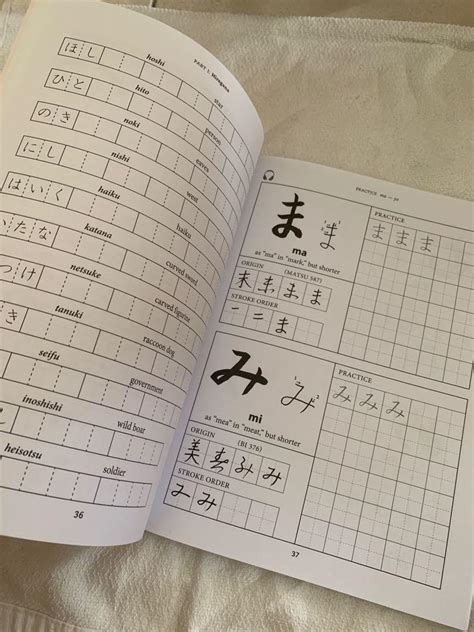 PART 1: Hiragana
ほし
hoshi
star
ひと
hito
person
のき
noki
eaves
にし
nishi
west
はいく
haiku
かたな
katana
curved sword
つけ
netsuke
figurine
き
tanuki
raccoon dog
seifu
government
inoshishi
wild boar
heisotsu
soldier
36
PRACTICE
ま ま
ma
as "ma" in "mark," but shorter
ORIGIN (MATSU 587)
末 ま ま
STROKE ORDER
一 二 ま
PRACTICE
ま ま ま
み み
mi
as "mea" in "meat," but shorter
ORIGIN (BI 376)
美 み み
STROKE ORDER
み
PRACTICE
み み み
37